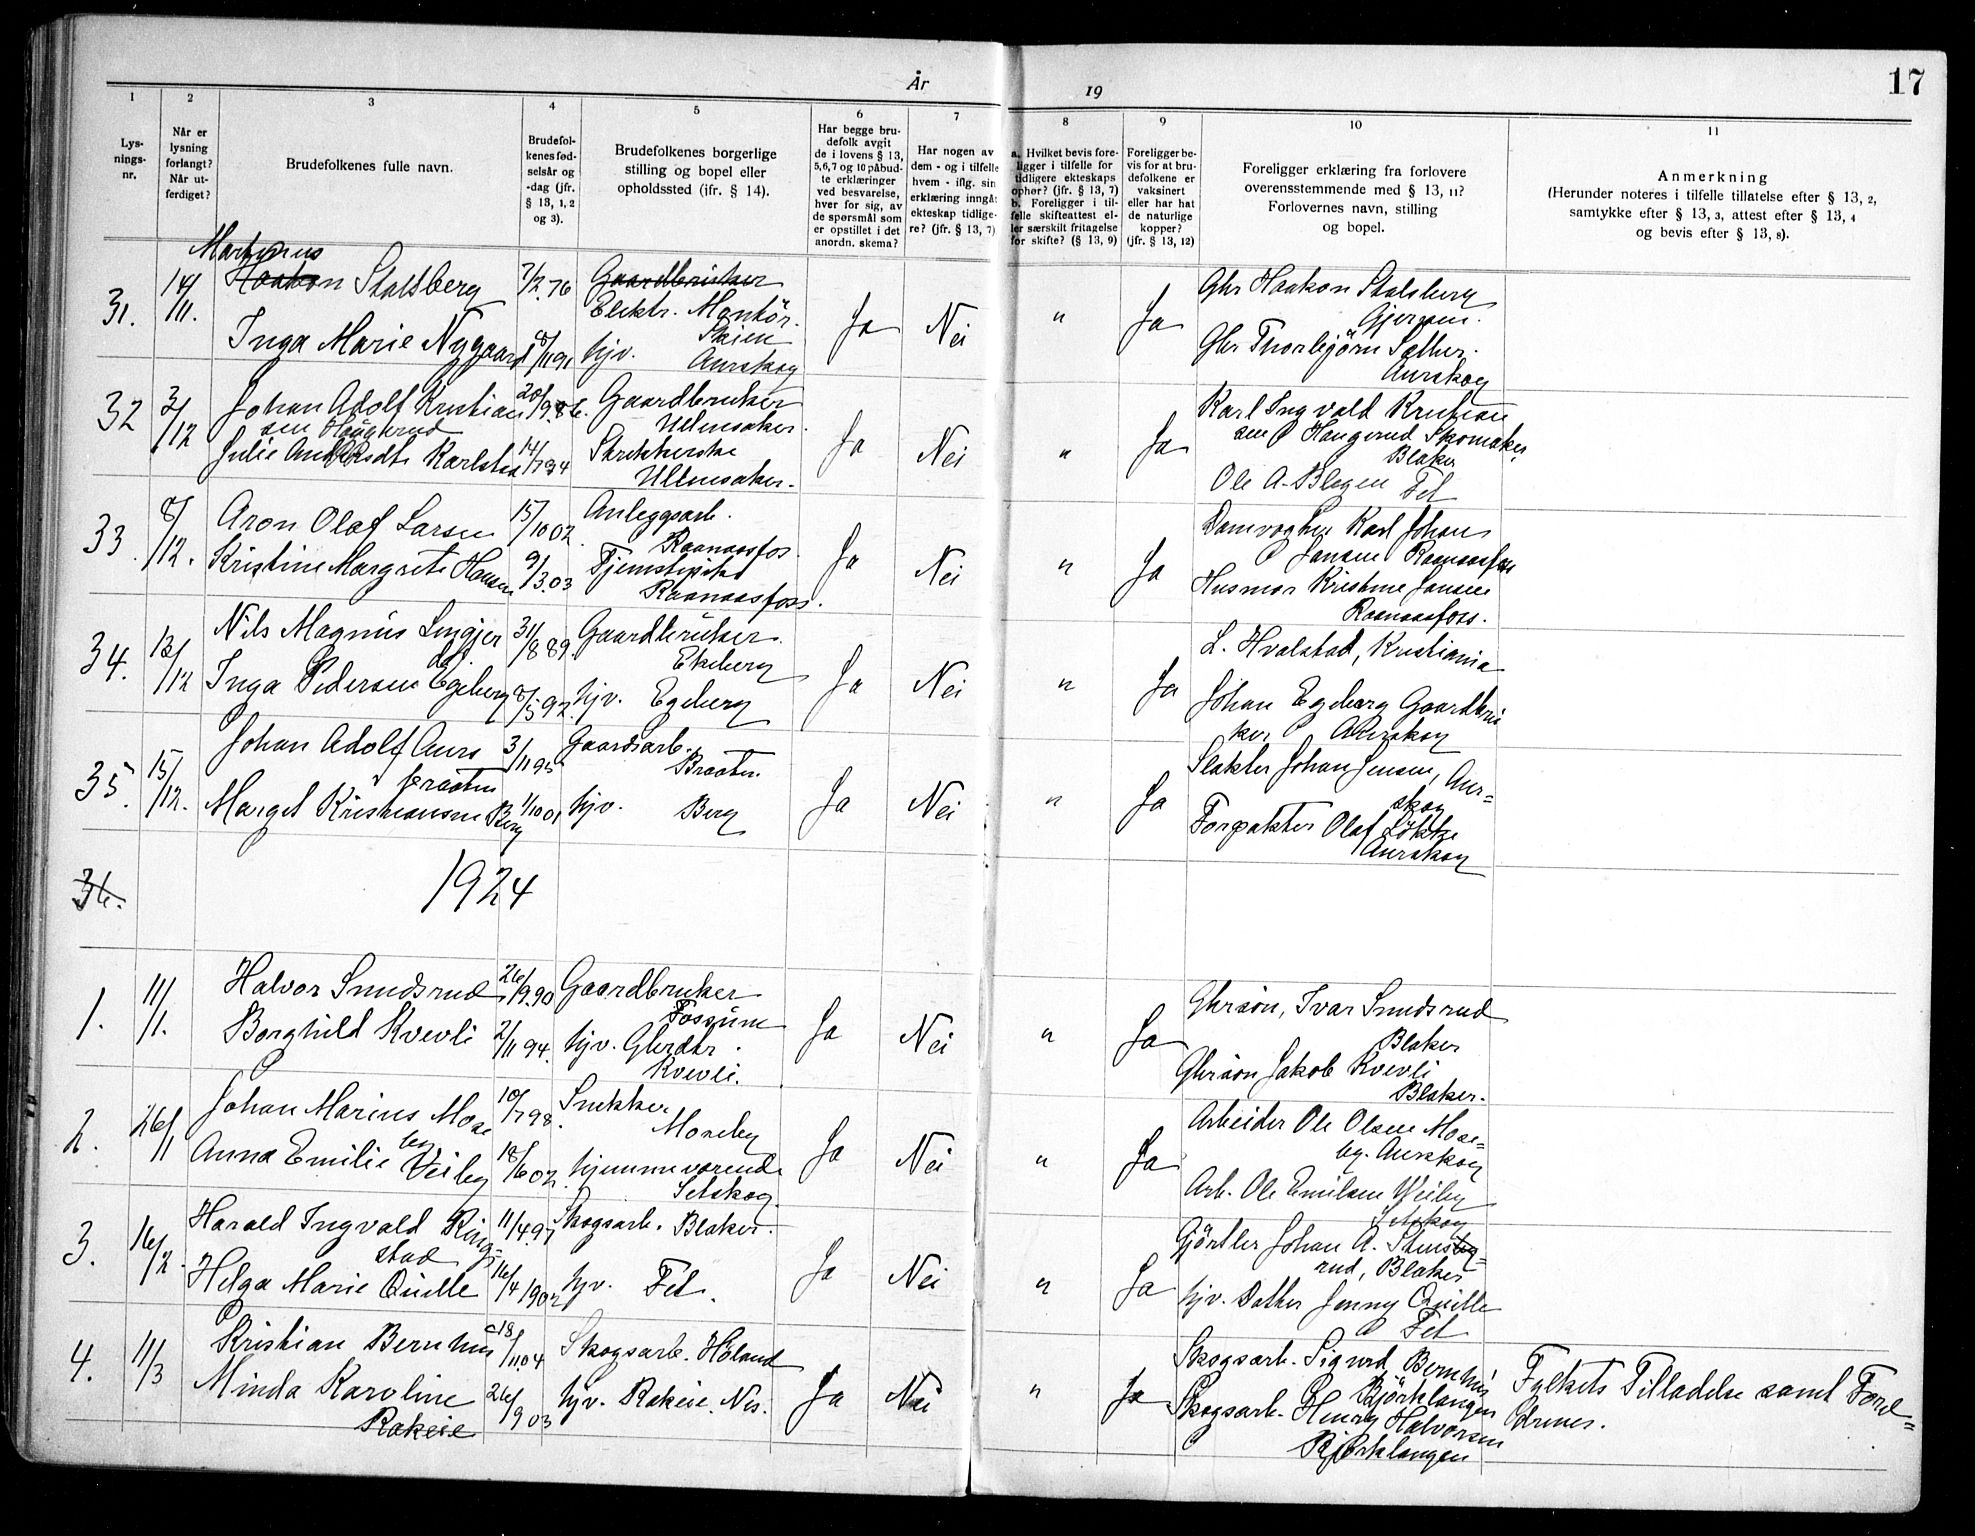 År
19
17
1
2
3
4
5
6
7
8
9
10
11
Lys-
nings-
nr.
Når er
lysning
forlangt?
Når ut-
ferdiget?
Brudefolkenes fulle navn.
Brudefol-
kenes fød-
selsår og
-dag (jfr.
§ 13, 1, 2
og 3).
Brudefolkenes borgerlige
stilling og bopel eller
opholdssted (ifr. § 14).
Har begge bru-
defolk avgit
de i lovens § 13,
5,6,7 og 10 påbud-
te erklæringer
ved besvarelse,
hver for sig, av
de spørsmål som
er opstillet i det
anordn. skema?
Har nogen av
dem - og i tilfelle
hvem - iflg. sin
erklæring inngåt
ekteskap tidlige-
re? (jfr. § 13, 7)
a. Hvilket bevis fore-
ligger i tilfelle for
tidligere ekteskaps
ophør? (jfr. § 13, 7)
b. Foreligger i til-
felle skifteattest el-
ler særskilt fritagelse
for skifte? (§ 13, 9)
Foreligger be-
vis for at bru-
defolkene er
vaksinert
eller har hat
de naturlige
kopper?
(jfr. § 13, 12)
Foreligger erklæring fra forlovere
overensstemmende med § 13, 11?
Forlovernes navn, stilling
og bopel.
Anmerkning
(Herunder noteres i tilfelle tillatelse efter § 13, 2,
samtykke efter § 13, 3, attest efter § 13, 4
og bevis efter § 13, 8).
31.
14/11.
Martinus
Haakon Stalsberg
7/2.76
Gaardbruker
Elektr. Montör.
Skien
Inga Marie Nygaard
8/11 91
hjv.
Aurskog
Ja
Nei
"
Ja
Gbr Haakon Stalsberg
Gjersøen.
Gbr Thorbjörn Sæther.
Aurskog
32
3/12
Johan Adolf Kristian
sen Haugerud
20/9.86.
Gaardbruker
Ullensaker.
Karlstad
14/7 94
Ullensaker.
Ja
Nei
"
Ja
Karl Ingvald Kristian
sen Haugerud Skomaker,
Blaker
Ole A. Blegen Fet
33
8/12.
Aron Olaf Larsen
15/10 02
Anleggsarb.
Raanaasfos.
Kristine Margrete Hansen
9/3.03
Tjenestepike
Raanaasfoss.
Ja
Nei
"
Ja
Damvogter Karl Johan
Jansen Raanaasfoss
Husmor Kristine Jansen
Raanaasfoss.
34.
13/12
Nils Magnus Lingjer
det.
31/8 89.
Gaardbruker.
Ekeberg
Inga Pedersen Egeberg
8/5 92.
hjv. Egeberg
Ja
Nei
"
Ja
L. Hvalstad, Kristiania
Johan Egeberg Gaardbru
ker Aurskog
35.
15/12.
Johan Adolf Aurs
braaten
3/11 95
Gaardsarb.
Braaten.
Marget Kristiansen Berg
1/10 01
hjv. Berg
Ja
Nei
"
Ja
Slakter Johan Jensen, Aur=
skog
Forpakter Olaf Lökke
Aurskog
36.
1924
1.
11/1.
Halvor Smedsrud
26/9.90
Gaardbruker
Fossum
Borghild Kvevli
2/11 94.
hjv. Gbrdtr.
Kvevli.
Ja
Nei
"
Ja
Gbrsön, Ivar Smedsrud
Blaker
Gbrsön Jakob Kvevli
Blaker.
2.
26/1
Johan Marius Mose
by
10/7 98.
Snekker
Moseby
Anna Emilie Veiby
18/6 02.
hjemmeværende
Setskog.
Ja
Nei
"
Ja
Arbeider Ole Olsen Mose=
by. Aurskog
Arb. Ole Emilsen Weiby
Setskog
3.
16/2.
Harald Ingvald Ring-
stad
11/4 97
Skogsarb. Blaker.
Helga Marie Quille
16/4 1902
hjv. Fet.
Ja
Nei
"
Ja
Gjörtler Johan A. Stensby=
rud, Blaker
hjv. Datter Jenny Quille
Fet
4.
11/3
Kristian Bernhus
18/11.04
Skogsarb. Höland
Minda Karoline
Rakeie
26/9 03
hjv. Rakeie, Nes.
Ja
Nei
"
Ja
Skogsarb. Sigurd Bernhus
Björkelangen
Skogsarb. Henry Halvorsen
Björkelangen
Fylkets Tilladelse samt Foræl=
drenes.